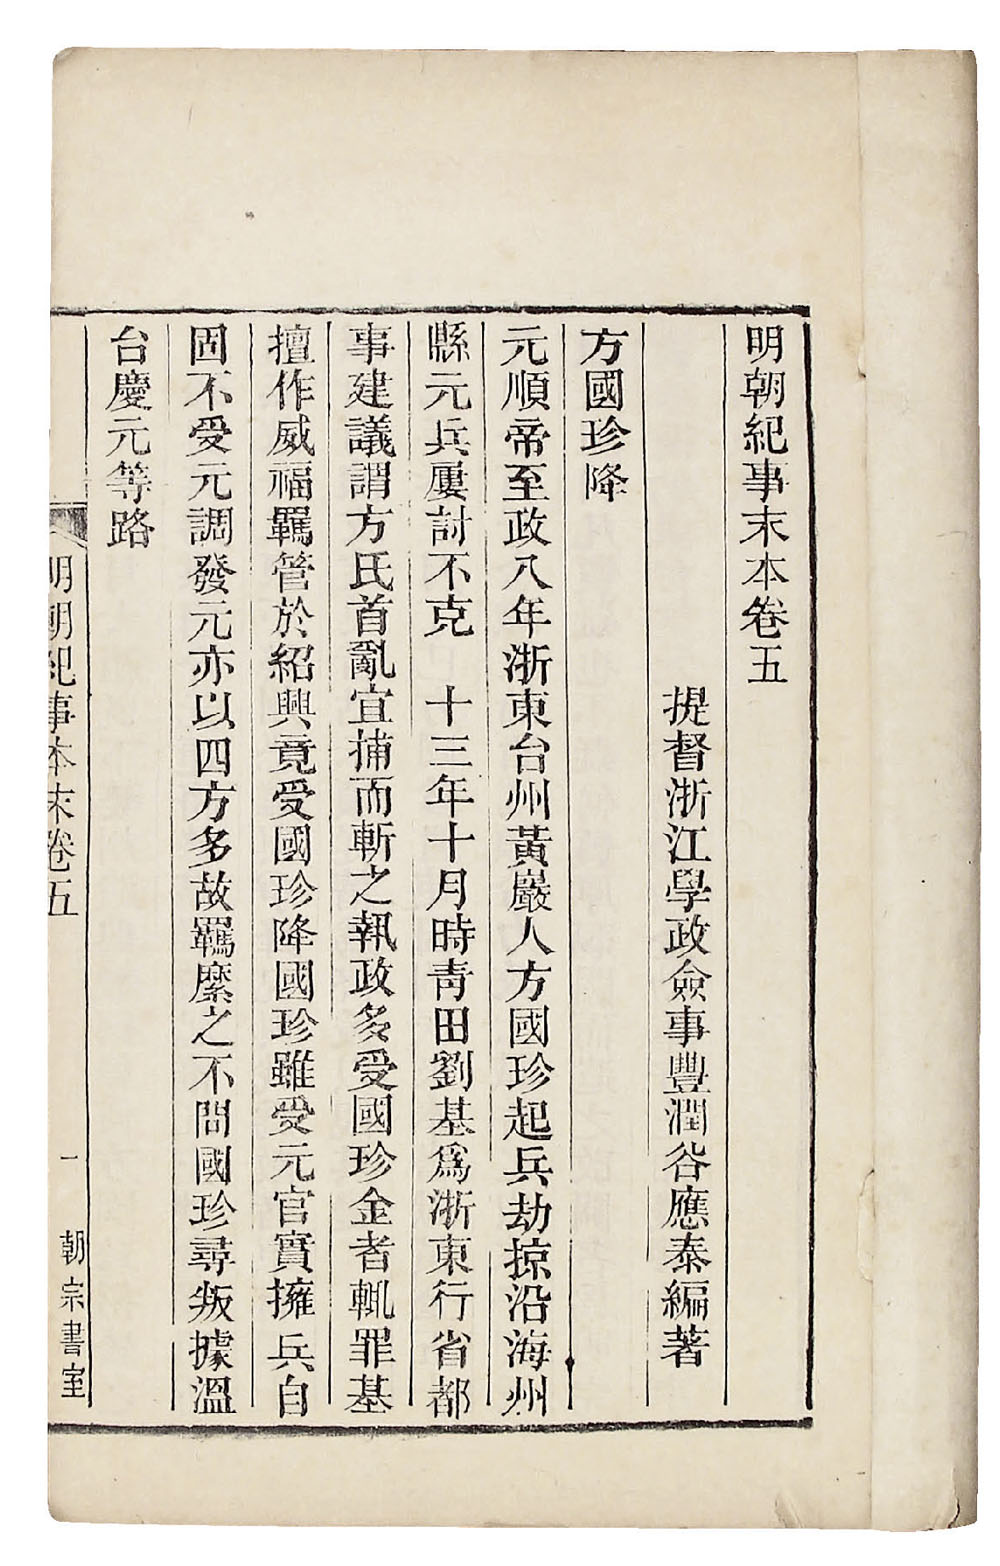 明朝紀事末本卷五
提督浙江學政僉事豐潤谷應泰編著
方國珍降
元順帝至政八年浙東台州黃巖人方國珍起兵劫掠沿海州
縣元兵屢討不克　十三年十月時靑田劉基爲浙東行省都
事建議謂方氏首亂宜捕而斬之執政多受國珍金者輒罪基
擅作威福羈管於紹興竟受國珍降國珍雖受元官實擁兵自
固不受元調發元亦以四方多故羈縻之不問國珍尋叛據溫
台慶元等路
明朝紀事本末卷五
一
朝宗書室